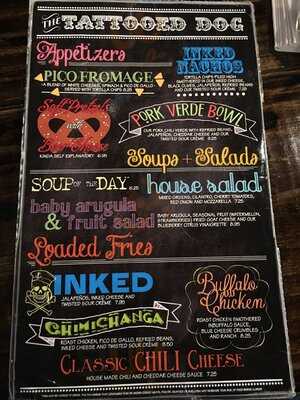 THE TATTOOED DOG
Appetizers
PICO FROMAGE
A BLEND OF WHITE CHEESE, SPINACH & PICO DE GALLO
SERVED WITH TORTILLA CHIPS 8.25
INKED
NACHOS
TORTILLA CHIPS PILED HIGH
SMOTHERED IN OUR INKED CHEESE,
BLACK OLIVES, JALAPEÑOS, REFRIED BEANS,
AND OUR TWISTED SOUR CRÈME
Soft Pretzels
with
Beer Cheese
KINDA SELF EXPLANATORY
PORK VERDE BOWL
OUR PORK CHILI VERDE WITH REFRIED BEANS,
JALAPEÑOS, CHEDDAR CHEESE AND OUR
TWISTED SOUR CRÈME
Soups + Salads
SOUP OF THE DAY
house salad
MIXED GREENS, CILANTRO, CHERRY TOMATOES,
RED ONION AND MOZZARELLA 7.25
baby arugula
& fruit salad
BABY ARUGULA, SEASONAL FRUIT (WATERMELON,
STRAWBERRIES) FRIED GOAT CHEESE AND OUR
BLUEBERRY CITRUS VINAIGRETTE
Loaded Fries
INKED
JALAPEÑOS, INKED CHEESE AND
TWISTED SOUR CRÈME
CHIMICHANGA
ROAST CHICKEN, PICO DE GALLO, REFRIED BEANS,
INKED CHEESE AND TWISTED SOUR CRÈME 8.50
Buffalo
Chicken
ROAST CHICKEN SMOTHERED
IN BUFFALO SAUCE,
BLUE CHEESE CRUMBLES
AND RANCH 8.25
CLASSIC CHILI CHEESE
HOUSE MADE CHILI AND CHEDDAR CHEESE SAUCE 7.25